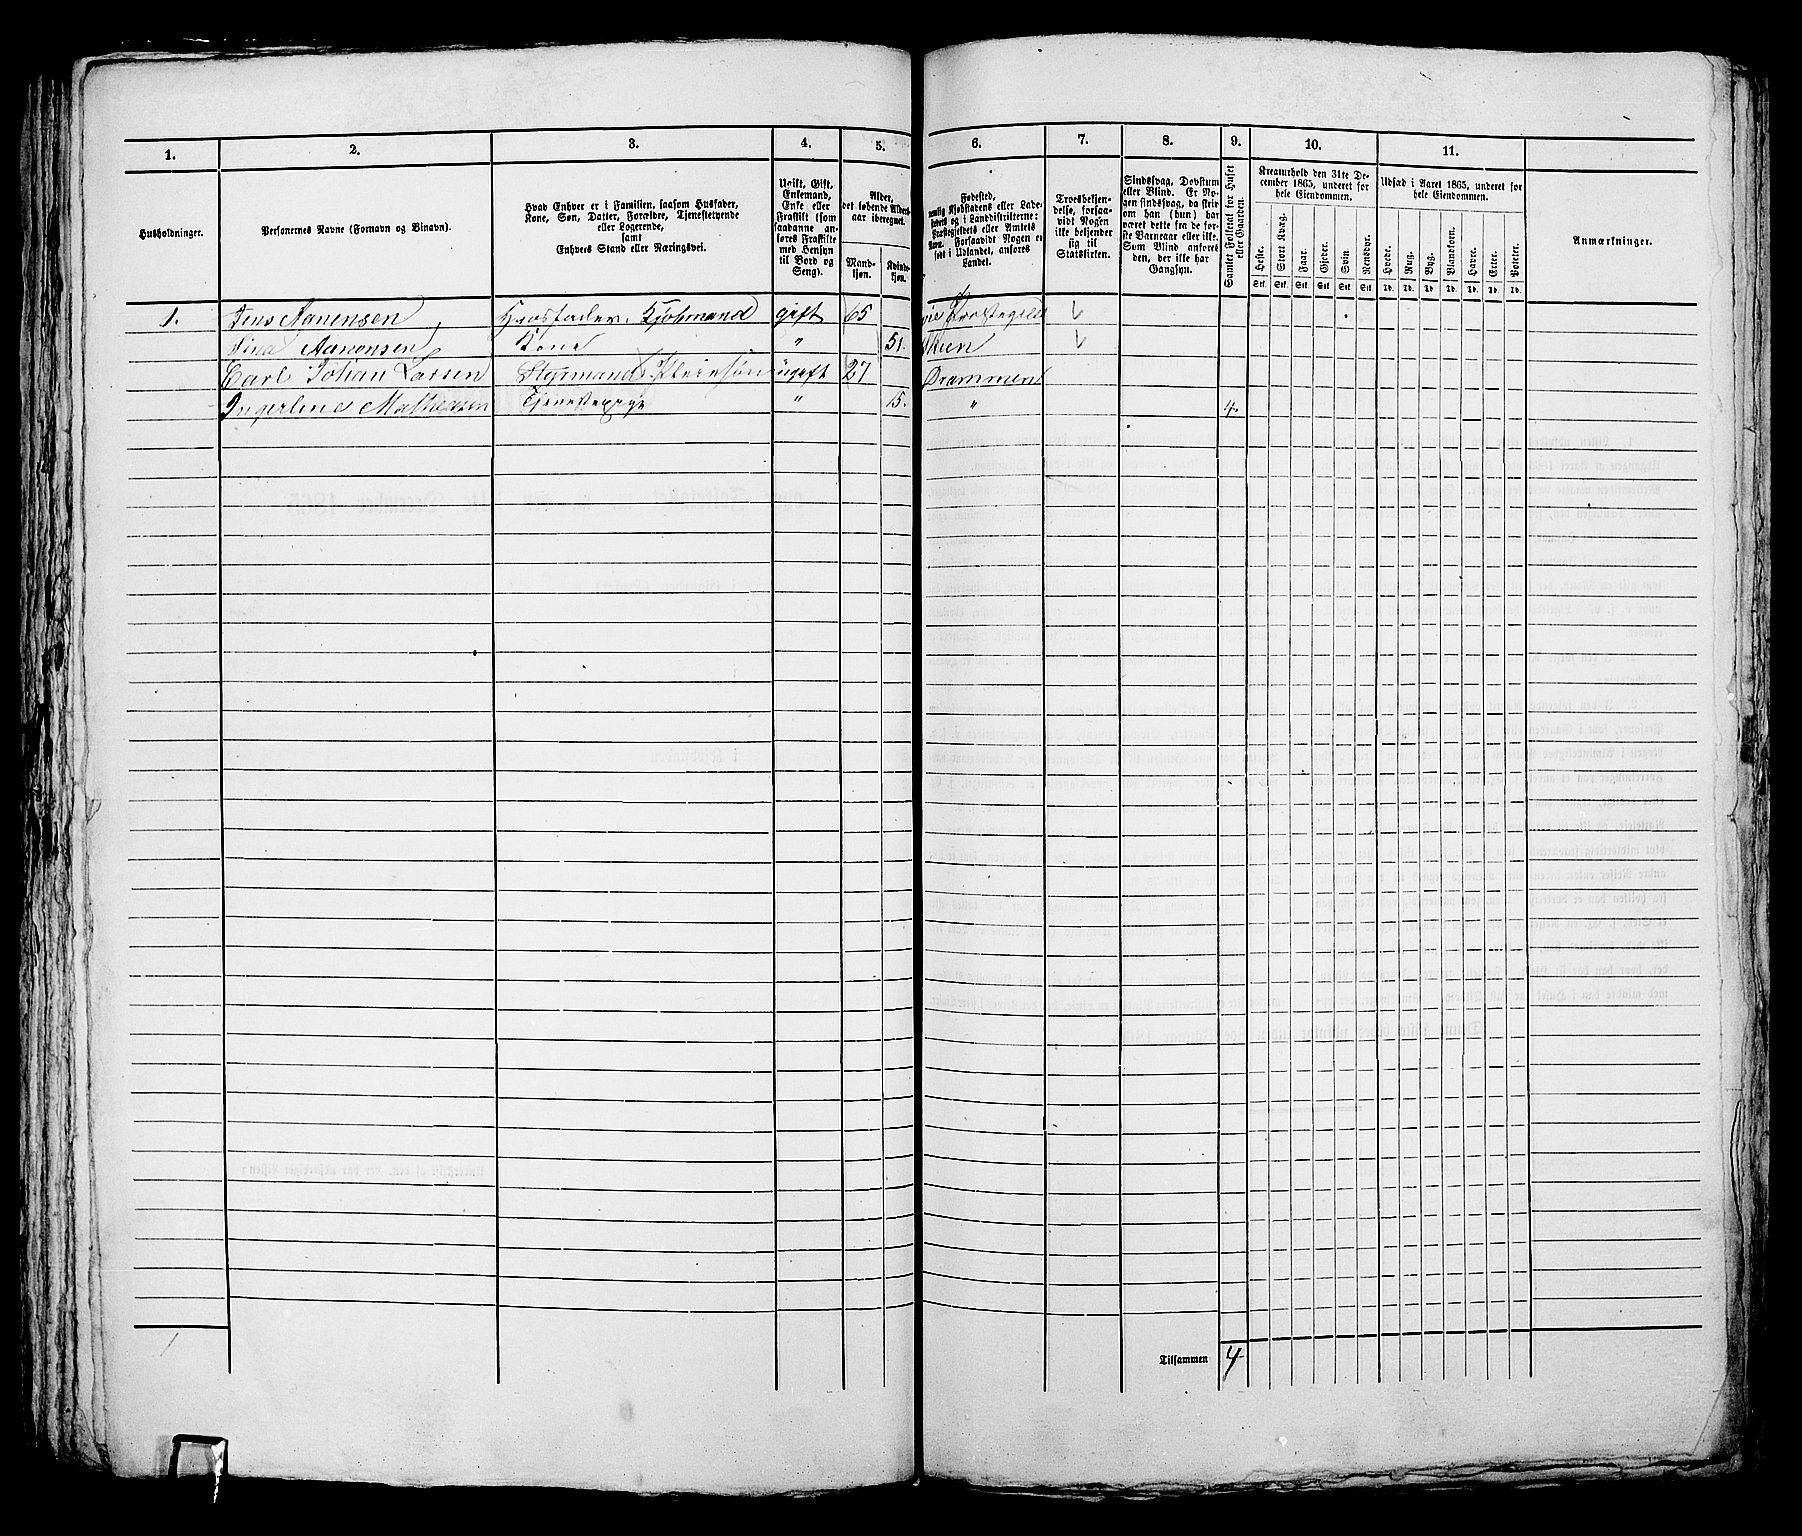 1. 2. 3. 4. 5. 6. 7. 8. 9. 10. 11.
Husholdninger.
Personernes Navne (Fornavn og Binavn).
Hvad Enhver er i Familien, saasom Husfader,
Kone, Søn, Datter, Forældre, Tjenestetyende
eller Logerende,
samt
Enhvers Stand eller Næringsvei.
Ugift, Gift,
Enkemand,
Enke eller
Fraskilt (som
saadanne an-
føres Fraskilte
med Hensyn
til Bord og
Seng).
Alder,
det løbende Alders-
aar iberegnet.
Mand-
kjøn.
Kvinde-
kjøn.
Fødested,
nemlig Kjøbstadens eller Lade-
stedets og i Landdistrikterne:
Præstegjeldets eller Amtets
Navn. Forsaavidt Nogen er
født i Udlandet, anføres
Landet.
Troesbekjen-
delse, forsaa-
vidt Nogen
ikke bekjender
sig til
Statskirken.
Sindssvag, Døvstum
eller Blind. Er No-
gen sindssvag, da skriv
om han (hun) har
været dette fra de før-
ste Barneaar eller ikke.
Sum Blind anføres
den, der ikke har
Gangsyn.
Samlet Folketal for Huset
eller Gaarden.
Kreaturhold den 31te De-
cember 1865, underet for
hele Eiendommen.
Heste. Stort Kvæg. Faar. Gjeder. Svin Rensdyr.
Stk. Stk. Stk. Stk. Stk. Stk.
Udsæd i Aaret 1865, underet for
hele Eiendommen.
Hvede. Rug. Byg. Blandkorn. Havre. Erter. Poteter.
Td. Td. Td. Td. Td. Td. Td.
Anmærkninger.
1. Jens Aanensen Husfader. Kjøbmand gift 65 Præstegjeld
Sina Aanonsen Kone " 51. Skien
Carl Johan Larsen Styrmand Pleiesøn ugift 27 Drammen
Ingerline Mathesen Tjenestepige " 15. " 4.
1
Tilsammen 4